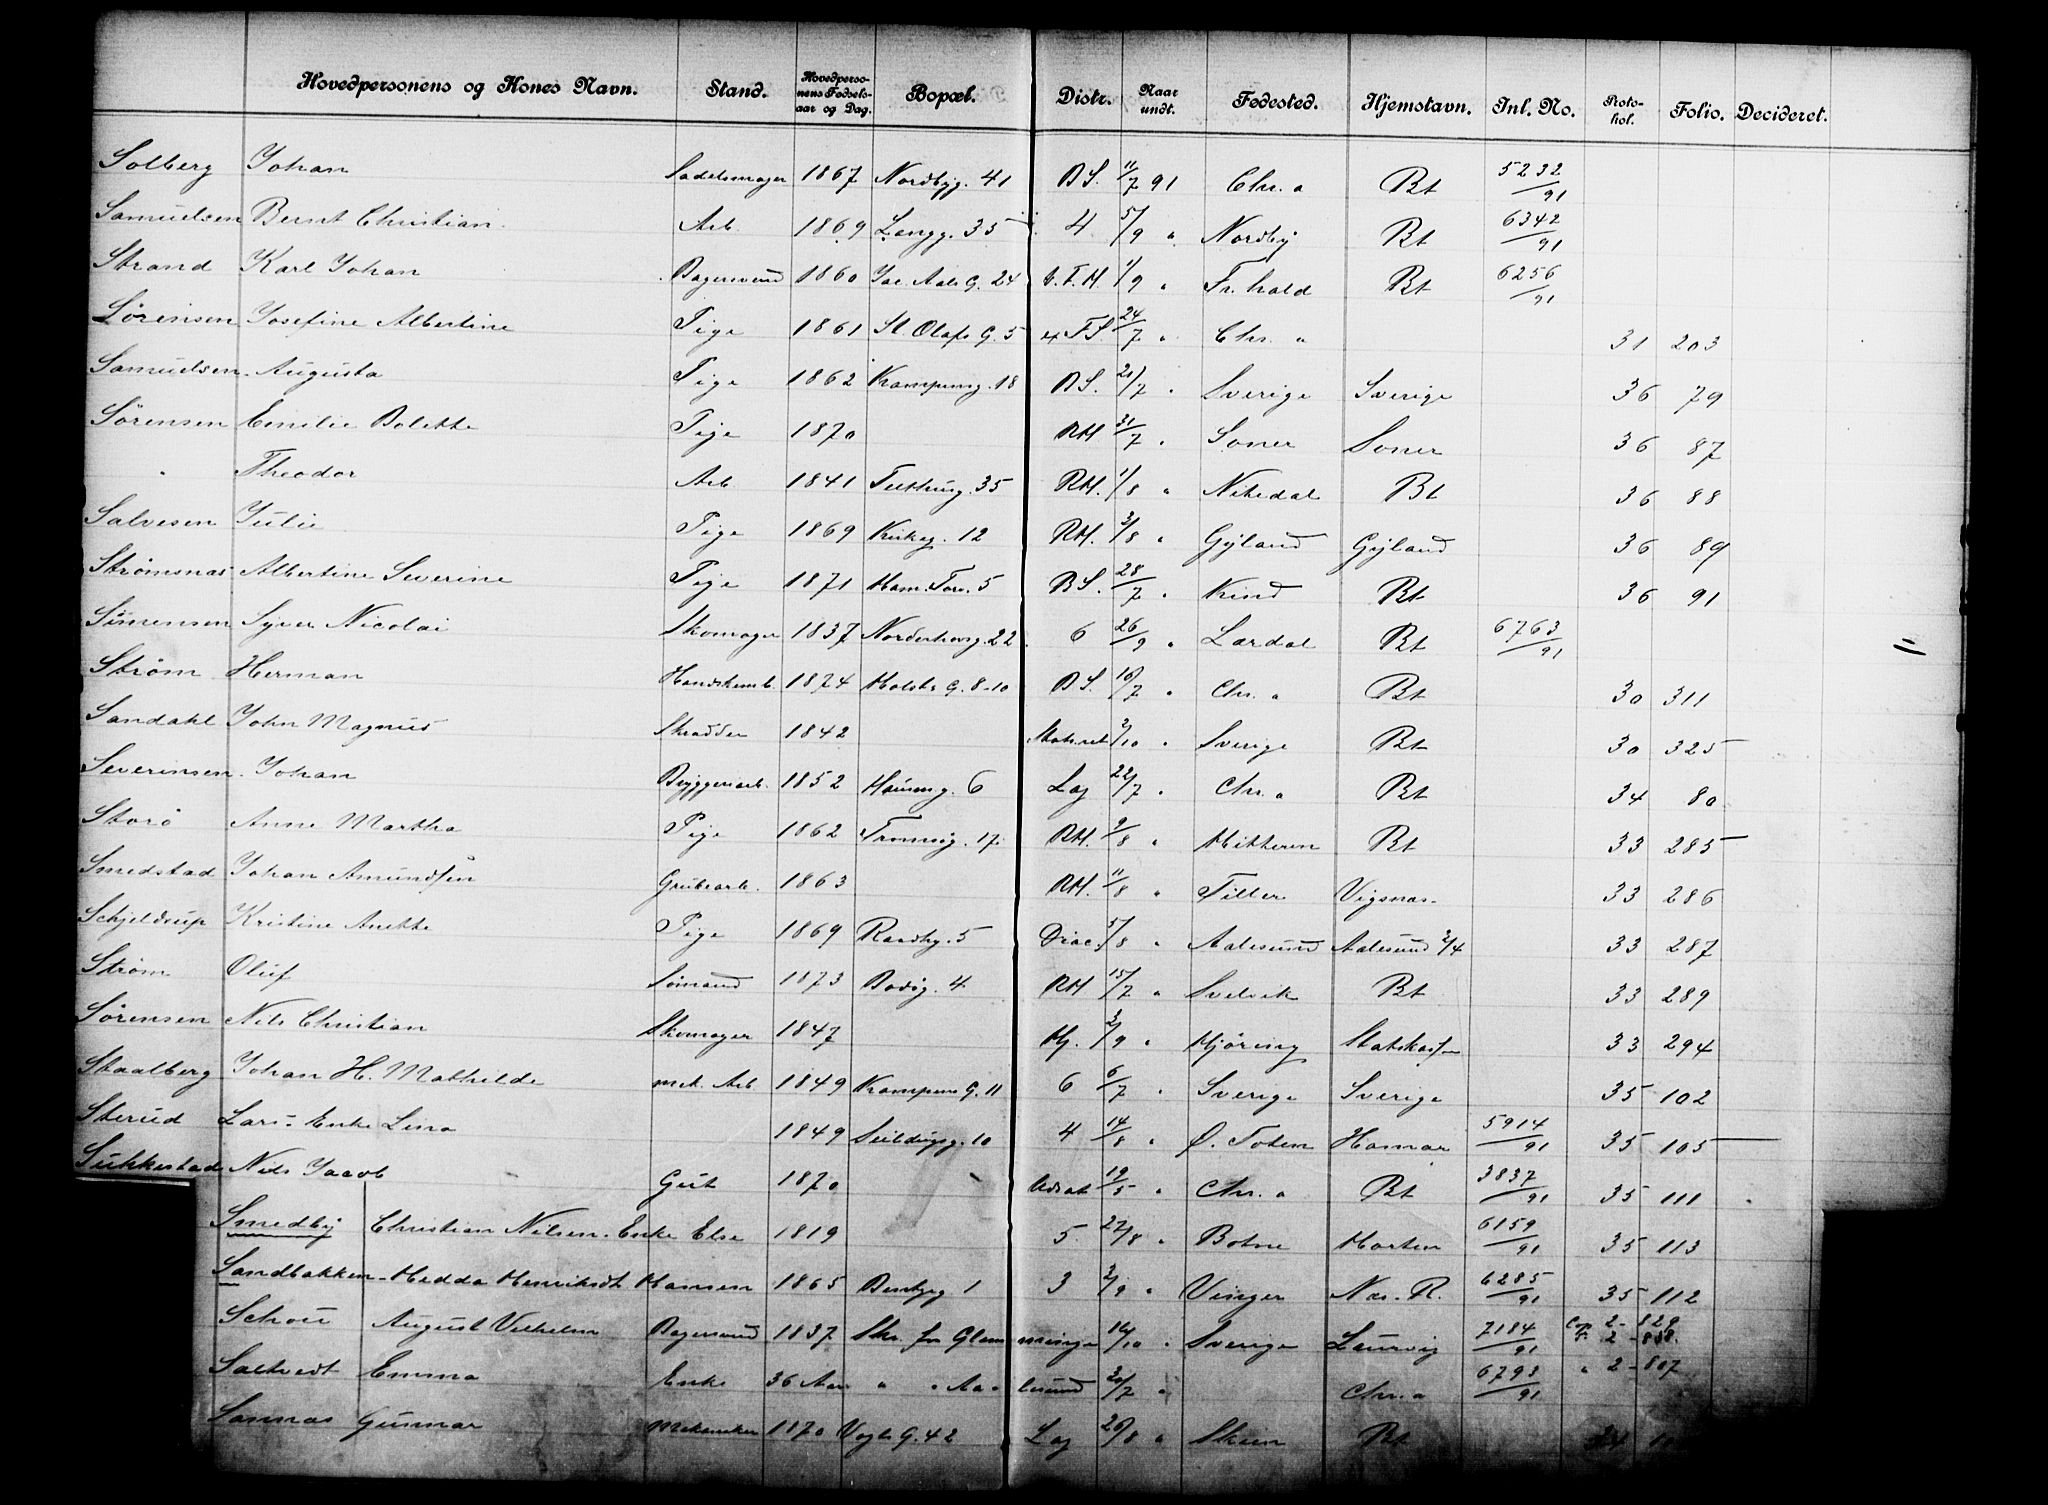 Hovedpersonens og Kones Navn. Stand. Hovedpersonens Fødselsaar og Dag. Bopæl. Distr. Naar undt. Fødested. Hjemstavn. Inl. No. Protokol. Folio. Decideret.
Solberg Johan Sadelmager 1867 Nordbyg. 41 BS. 11/7 91 Chr.a Bt 5232/91
Samuelsen Bernt Christian Arb 1869 Langg. 35 4 5/9 " Nordby Bt 6342/91
Strand Karl Johan Bagersvend 1860 Jac. Aals G. 24 1/9 " Fr.hald Bt 6256/91
Sörensen Josefine Albertine Pige 1861 St. Olafs G. 5 24/7 " Chr. a 31 203
Samuelsen Augusta Pige 1862 Kampeng. 18 BS. 21/7 " Sverige Sverige 36 79
Sørensen Emilie Bolette Pige 1870 RH 31/7 " Soner Soner 36 87
" Theodor Arb 1841 Tefthusg. 35 RH. 1/8 " Nitedal Bt 36 88
Salvesen Julie Pige 1869 Kirkeg. 12 RH. 3/8 " Gyland Gyland 36 89
Strømsnas Albertine Severine Pige 1871 Ham. Torv. 5 BS. 28/7 " Kind Bt 36 91
Simensen Syver Nicolai Skomager 1837 Norderhovsg. 22 6 26/9 " Lærdal Bt 6763/91
Strøm Herman Handskemb. 1874 Holsts G. 8-10 BS. 16/7 " Chr. a Bt 30 311
Sandahl John Magnus Skrædder 1842 2/10 " Sverige Bt 30 325
Severinsen Johan Bryggeriarb. 1852 Hausmg. 6 Log 22/7 " Chr. a Bt 34 80
Storö Anne Martha Pige 1862 Tromsög. 17 RH. 9/8 " Hitteren Bt 33 285
Smedstad Johan Amundsen Grubearb. 1863 RH. 11/8 " Tiller Vigsnæs 33 286
Schjeldrup Kristine Anette Pige 1869 Raadhg. 5 Diac. 5/8 " Aalesund Aalesund 2/4 33 287
Strøm Oluf Sømand 1873 Bodög. 4 RH 15/7 " Svelvik Bt 33 289
Sørensen Nils Christian Skomager 1847 Hj. 3/9 " Hjöring Statskassen 33 294
Staalberg Johan H. Mathilde mek. Arb 1849 Kampens G. 11 6 6/7 " Sverige Sverige 35 102
Sterud Lars - Enke Lina 1849 Seildugsg. 10 4 14/8 " Ø. Toten Hamar 5914/91 35 105
Sukkestad Nils Jacob Gut 1870 19/5 " Chr. a Bt 3837/91 35 111
Smedby Christian Nilsen - Enke Else 1819 5 27/8 " Botne Horten 6159/91 35 113
Sandbakken - Hedda Henriksdt Hansen 1865 Bentseg 1 3 2/9 " Vinger Næs. R. 6285/91 35 112
Schou August Vilhelm Bagersvend 1837 Skr. fra Glemminge 14/10 " Sverige Laurvig 7184/91 Cop. 2-829 2-858.
Saltvedt Emma Enke 36 Aar " " Aalesund 20/7 " Chr. a 6793/91 " 2-807
Sannæs Gunnar Mekaniker 1870 Vogts G. 42 Log 26/8 " Skien Bt